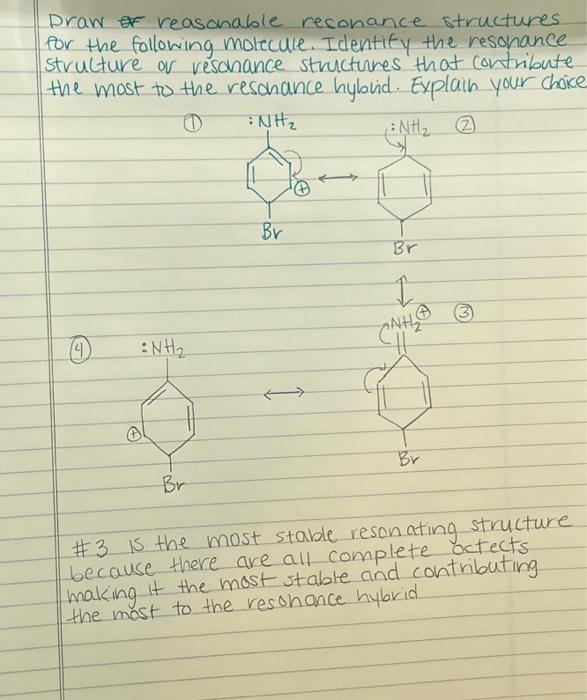 Draw or reasonable resonance structures
for the following molecule. Identify the resonance
strulture or resonance structures that contribute
the most to the resonance hybrid. Explain your choice
① :NH₂ :NH₂ ②
⊕
Br
Br
NH₂⊕ ③
④ :NH₂
⊕
Br
Br
#3 is the most stable resonating structure
because there are all complete octects
making it the most stable and contributing
the most to the resonance hybrid